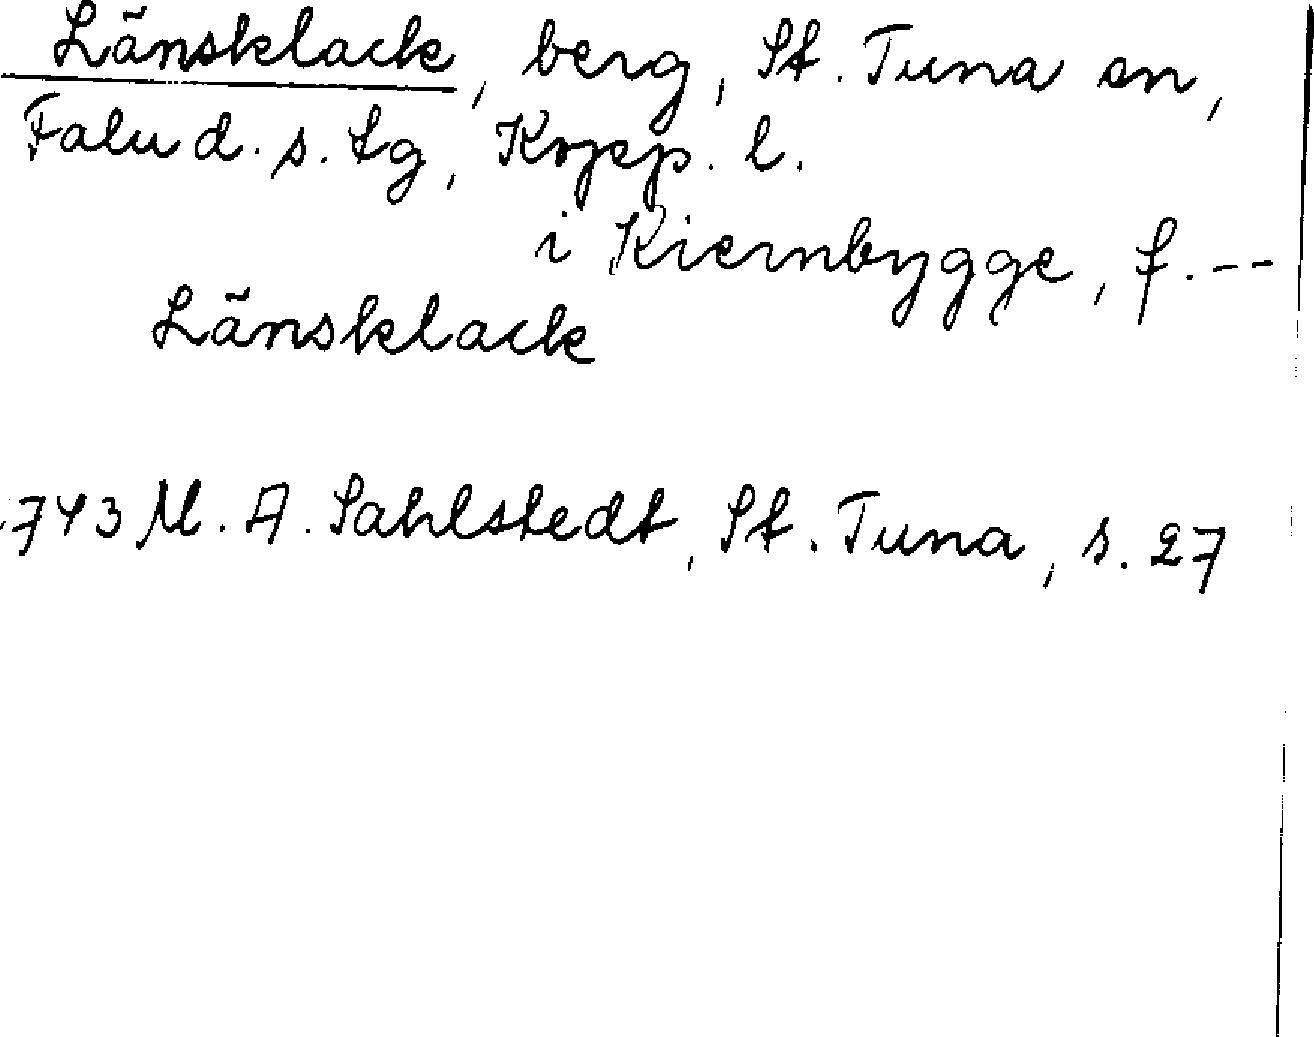 Länsklack, berg, St. Tuna sn,
Falu d. s. tg, Kopp. l.
i Kiernbygge, f. --
Länsklack
1743 M. A. Sahlstedt, St. Tuna, s. 27